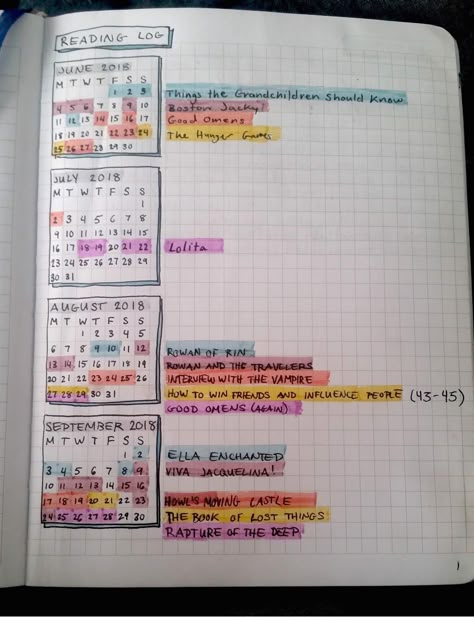 READING LOG
JUNE 2018
M T W T F S S
1 2 3 Things the Grandchildren Should Know
4 5 6 7 8 9 10 Boston Jacky!
11 12 13 14 15 16 17 Good Omens
18 19 20 21 22 23 24 The Hunger Games
25 26 27 28 29 30
JULY 2018
M T W T F S S
1
2 3 4 5 6 7 8
9 10 11 12 13 14 15
16 17 18 19 20 21 22 Lolita
23 24 25 26 27 28 29
30 31
AUGUST 2018
M T W T F S S
1 2 3 4 5
6 7 8 9 10 11 12 ROWAN OF RIN
13 14 15 16 17 18 19 ROWAN AND THE TRAVELERS
20 21 22 23 24 25 26 INTERVIEW WITH THE VAMPIRE
27 28 29 30 31 HOW TO WIN FRIENDS AND INFLUENCE PEOPLE (43-45)
GOOD OMENS (AGAIN)
SEPTEMBER 2018
M T W T F S S
1 2 ELLA ENCHANTED
3 4 5 6 7 8 9 VIVA JACQUELINA!
10 11 12 13 14 15 16
17 18 19 20 21 22 23 HOWL'S MOVING CASTLE
24 25 26 27 28 29 30 THE BOOK OF LOST THINGS
RAPTURE OF THE DEEP
1